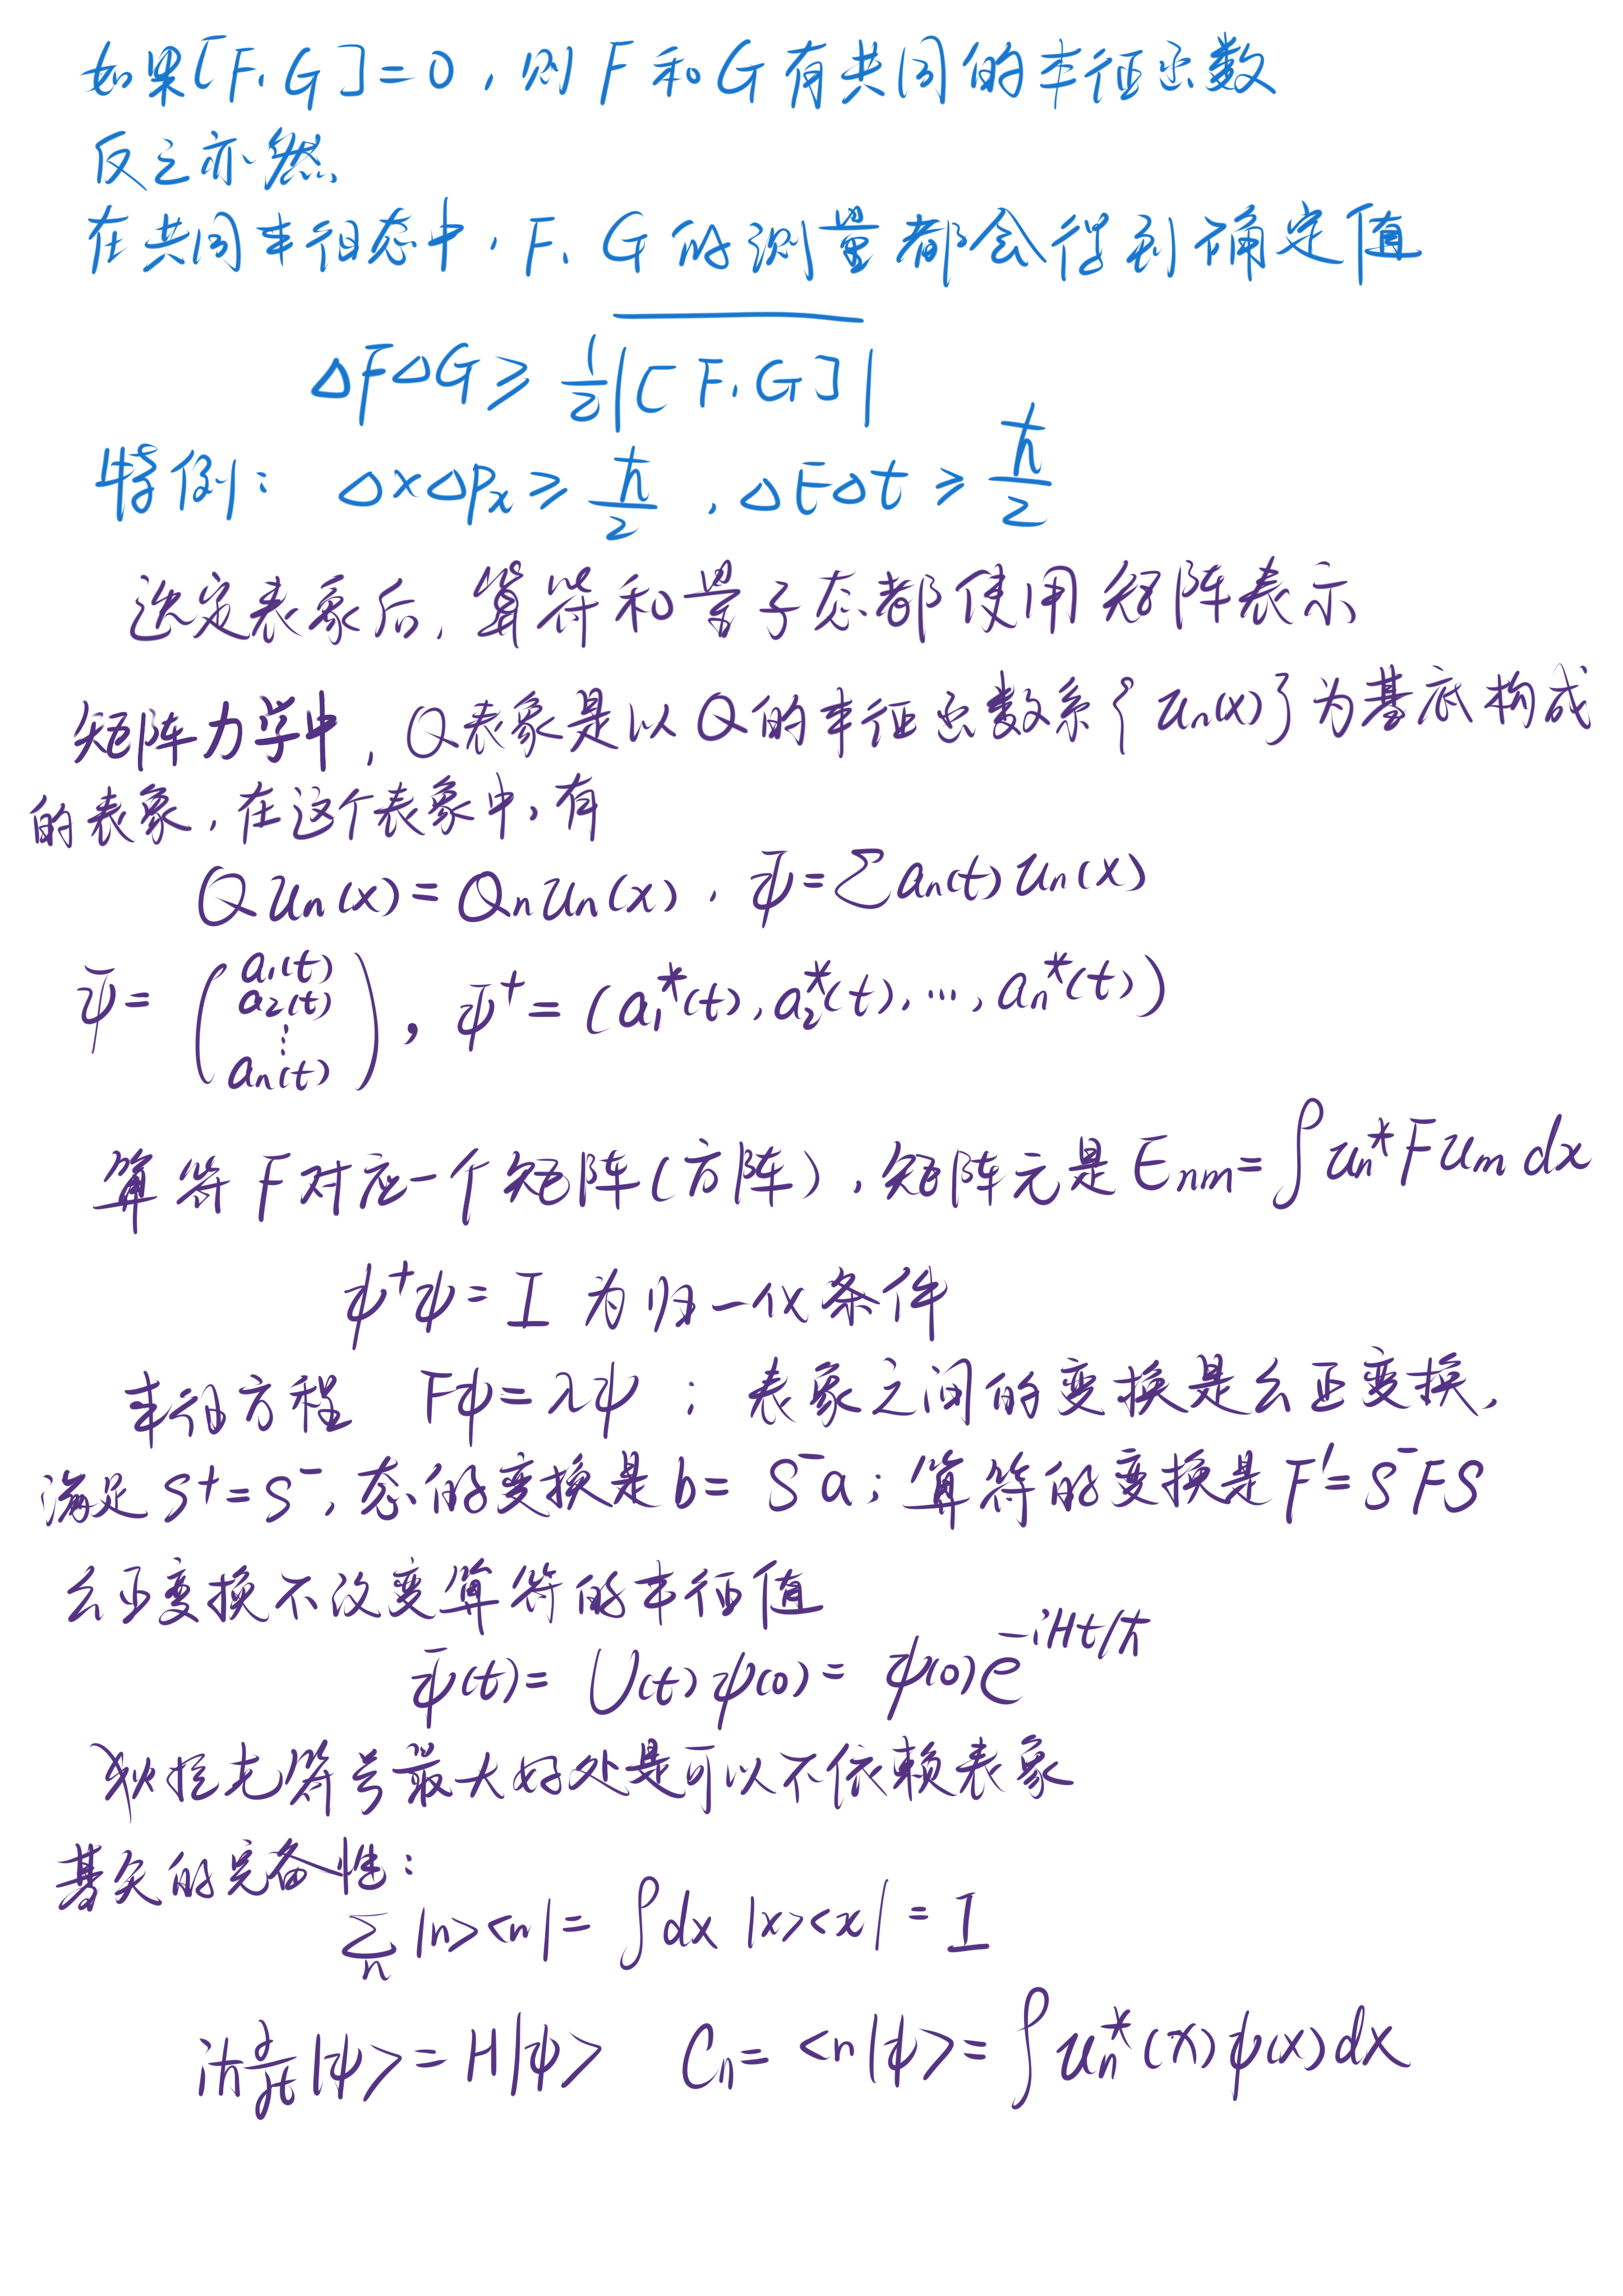 如果[F,G]=0,则F和G有共同的本征函数
反之亦然.
在共同本征态中,F,G的测量都会得到确定值
ΔFΔG≥½|\overline{[F,G]}|
特例: ΔxΔpₓ≥ħ/2 , ΔEΔt≥ħ/2
选定表象后,算符和量子态都使用矩阵表示
矩阵力学中,Q表象是以Q的本征函数系{uₙ(x)}为基底构成
的表象,在这个表象中,有
Quₙ(x)=Qₙuₙ(x) , Ψ=∑aₙ(t)uₙ(x)
Ψ=(a₁(t) a₂(t) ⋮ aₙ(t)) , Ψ⁺=(a₁*(t),a₂*(t),…,aₙ*(t))
算符F对应一个矩阵(方阵),矩阵元是Eₙₘ=∫uₙ*Fuₘdx
ψ⁺ψ=I 为归一化条件
本征方程 Fψ=λψ ; 表象之间的变换是幺正变换,
满足S⁺=S⁻,态的变换是b=S⁻a;算符的变换是F′=S⁻FS
幺正变换不改变算符的本征值
Ψ(t)=U(t)ψ(0)=ψ(0)e^{-iHt/ħ}
狄拉克符号最大好处是可以不依赖表象
基矢的完备性:
∑ₙ|n><n|=∫dx|x><x|=I
iħ∂/∂t|ψ>=H|ψ> Cₙ=<n|ψ>=∫uₙ*(x)ψ(x)dx